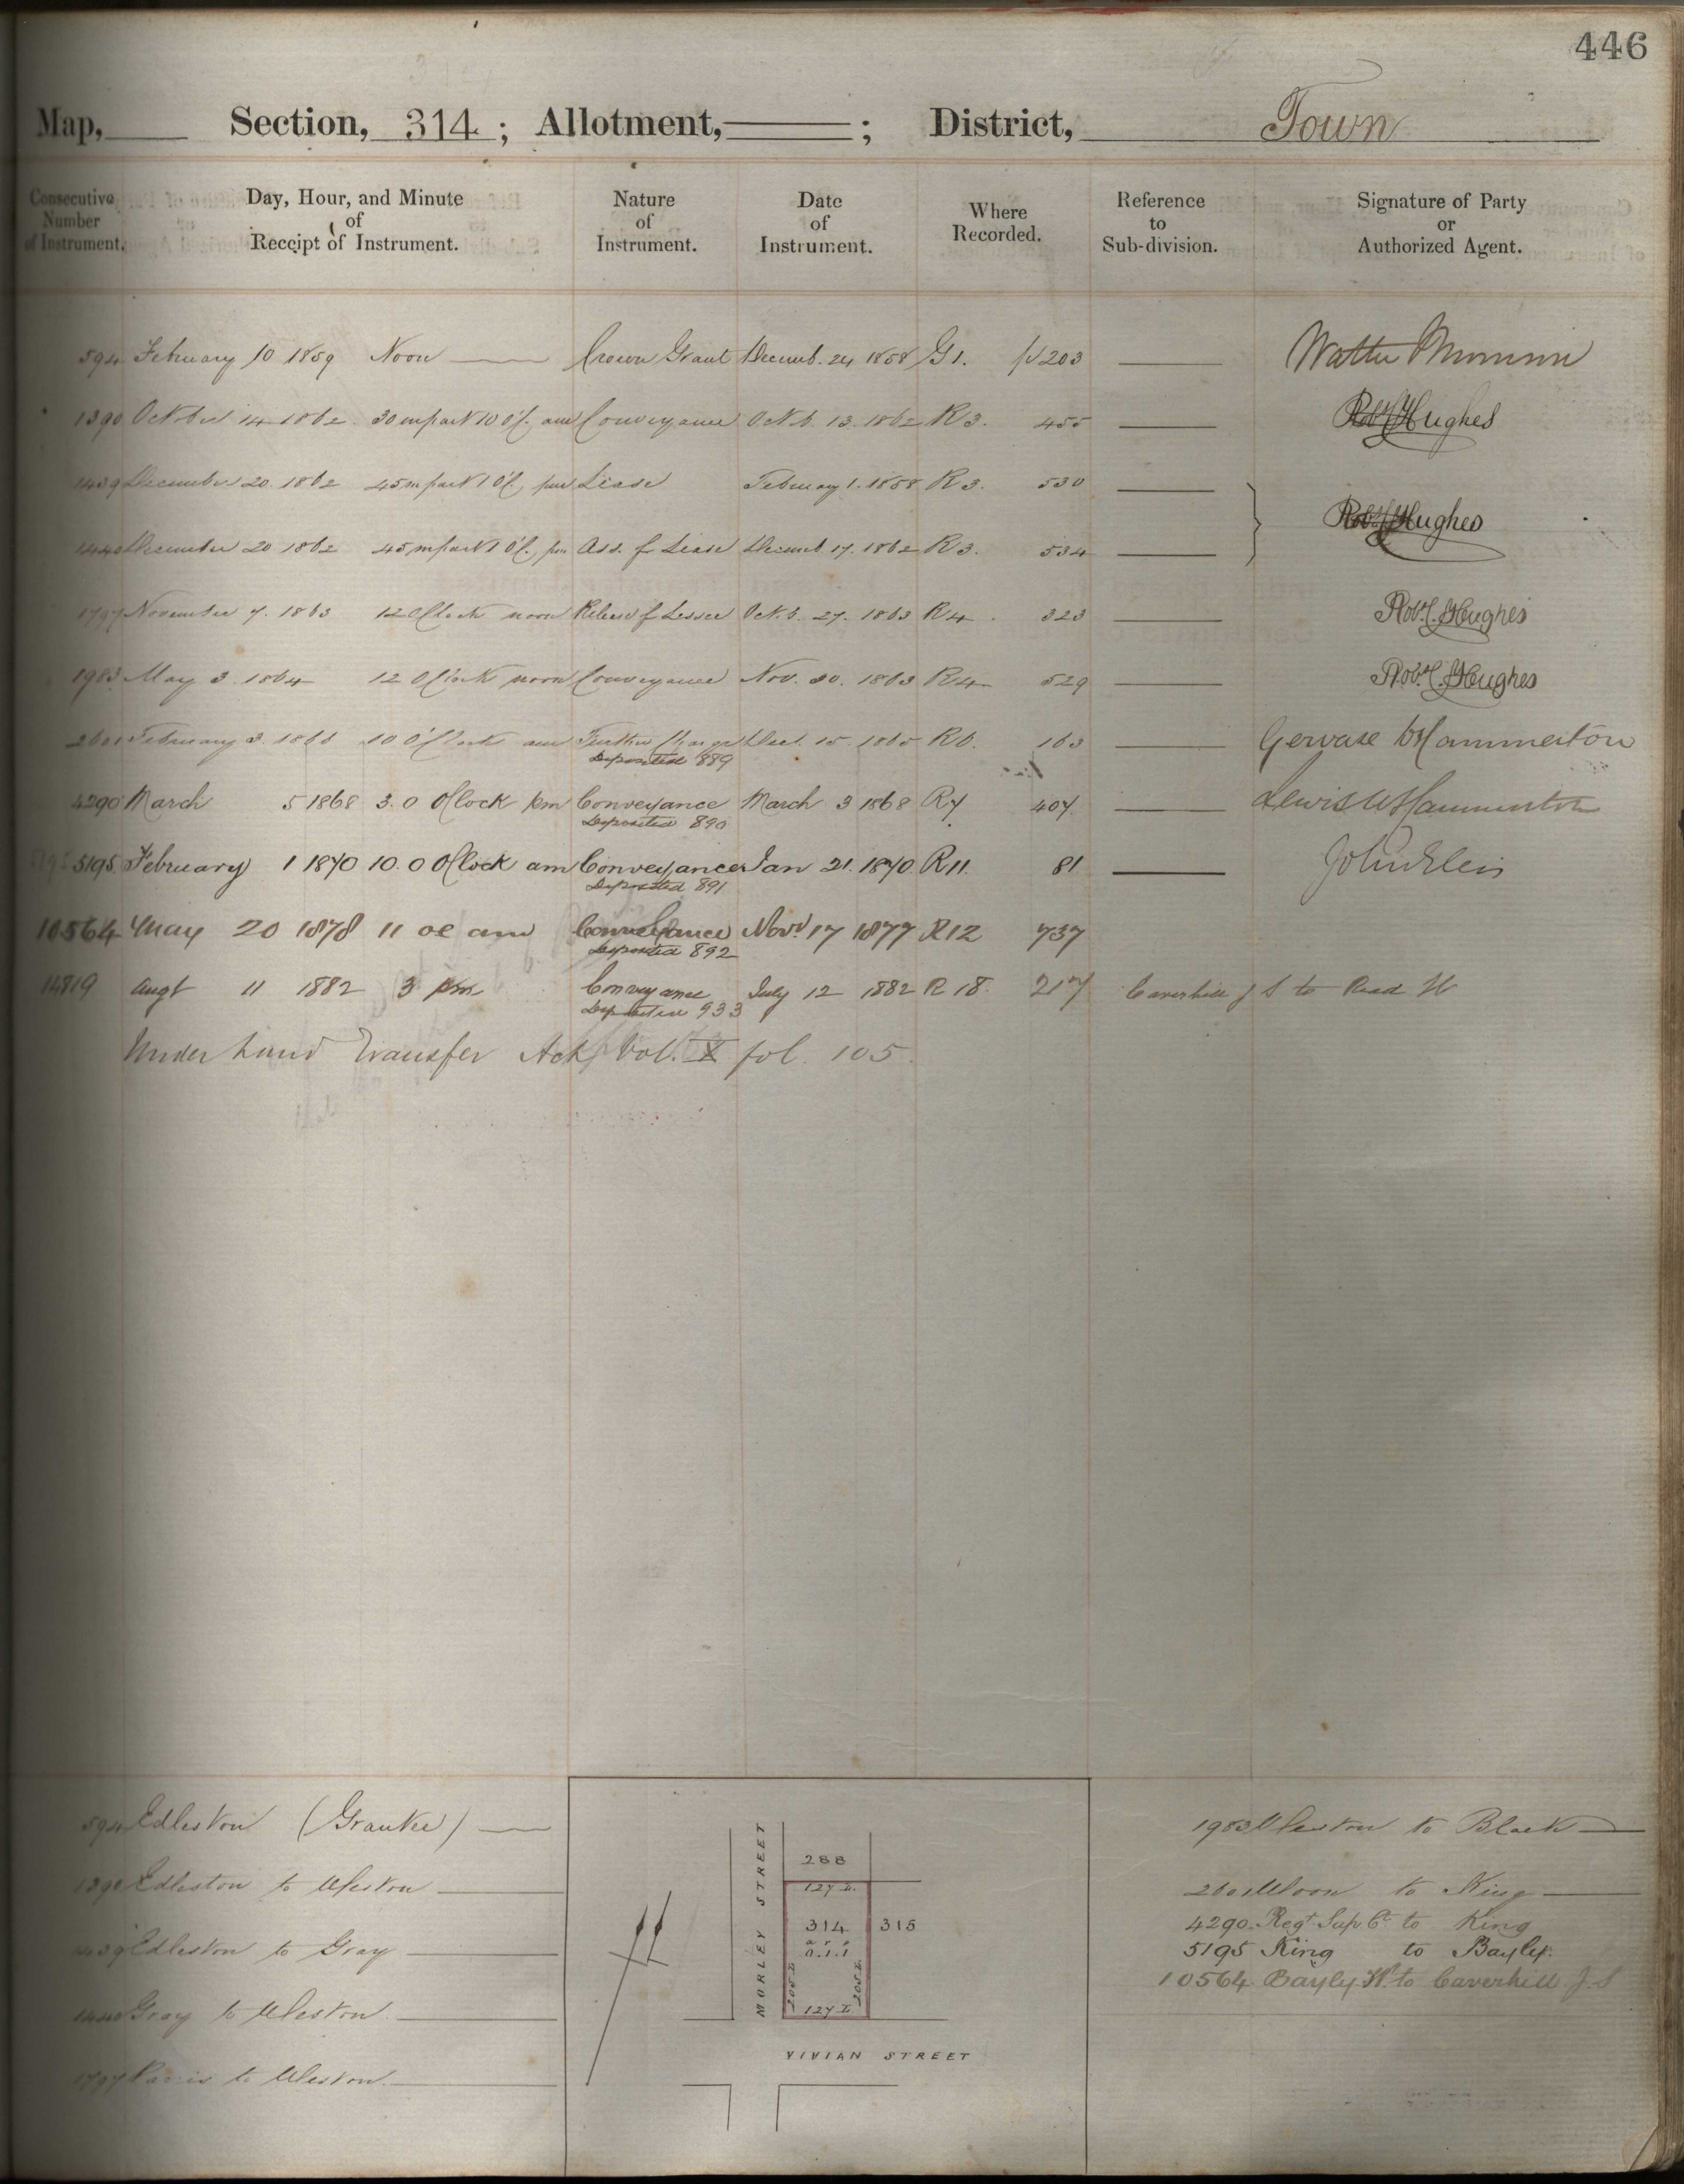 446
Map, Section, 314 ; Allotment, ; District, Town
Consecutive Number of Instrument.
Day, Hour, and Minute of Receipt of Instrument.
Nature of Instrument.
Date of Instrument.
Where Recorded.
Reference to Sub-division.
Signature of Party or Authorized Agent.
594 February 10 1859 Noon Crown Grant Decemb. 24 1858 G 1. p 203 Walter
1390 October 14 1862 30 m past 10 O'C. am Conveyance Octb. 13. 1862 R 3. 455 Robt Hughes
1439 December 20. 1862 45 m past 1 O'C. pm Lease February 1. 1858 R 3. 530
1440 December 20 1862 45 m past 1 O'C. pm Ass. of Lease Decemb 17. 1862 R 3. 534 Robt Hughes
1797 November 7. 1863 12 O'Clock noon Release of Lessee Octb. 27. 1863 R 4. 323 Robt. Hughes
1983 May 3. 1864 12 O'Clock noon Conveyance Nov. 30. 1863 R 4 529 Robt. Hughes
2601 February 3. 1866 10 O'Clock am Further Charge Dec. 15. 1865 R 6. 163 Gervase Hammerton
Deposited 889
4290 March 5 1868 3. 0 OClock pm Conveyance March 3 1868 R 7 407 Lewis Hammerton
Deposited 890
5195 February 1 1870 10. 0 OClock am Conveyance Jan 21. 1870. R 11. 81
Deposited 891
10564 May 20 1878 11 oc am Conveyance Novr 17 1877 R 12 737
Deposited 892
14819 Augt 11 1882 3 pm Conveyance July 12 1882 R 18. 217 Caverhill J S to Read W
Deposited 933
Under Land Transfer Act, Vol. X fol. 105.
594 Edleston (Grantee)
1390 Edleston to Weston
1439 Edleston to Gray
1440 Gray to Weston
1797 to Weston
MORLEY STREET
288
127 L.
314
a r p
0.1.1
315
205 L
205 L
127 L
VIVIAN STREET
1983 Weston to Black
2601 Moon to King
4290. Regr Sup. Ct to King
5195 King to Bayly.
10564 Bayly W. to Caverhill J. S